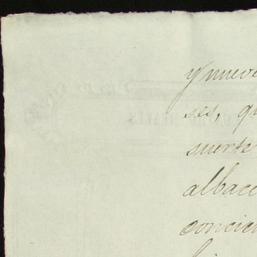 y nueve
ses, qu
suerte
albace
concien